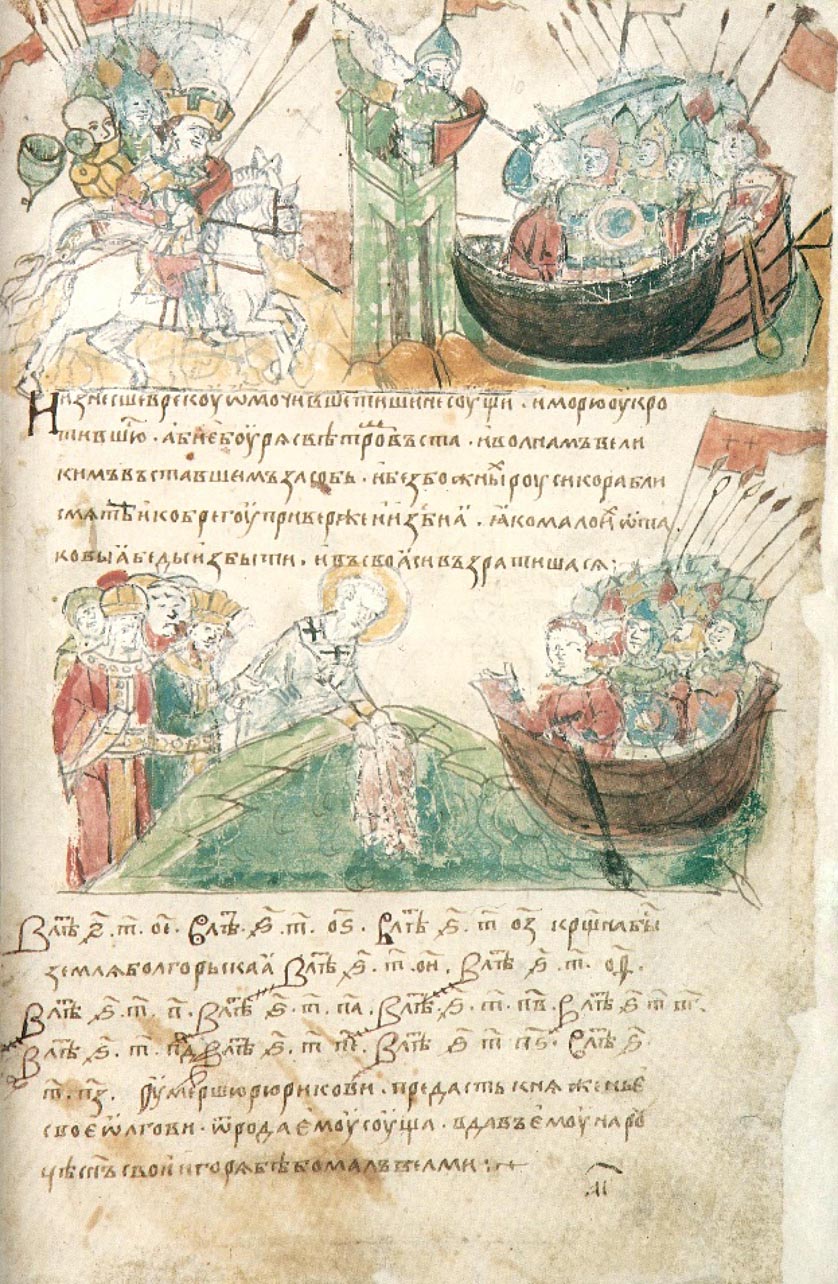 И изнесше в рекоу ѡмочивше тишине соущи . и морю оукро
тившюⷭ . абие боурѧ с вѣтроⷨ въста . и волнамъ вели
кимъ въставшемъ засобь . и безбожныⷯ роуси корабли
смѧте и ко брегоу привержени изби ꙗ . ꙗко мало иⷯ ѿ та
ковыꙗ беды избыти . и въ своꙗси възратишасѧ :
В лⷮѣ ѕ҃ . т҃ . ое҃ . В лⷮѣ . ѕ҃ . т҃ . оѕ҃ . В лⷮѣ ѕ҃ . т҃ оз҃ крщ҃на быⷭ
землѧ болгорьскаꙗ В лⷮѣ ѕ҃ . т҃ . ои҃ . В лⷮѣ ѕ҃ . т҃ . оѳ҃ .
В лⷮѣ ѕ҃ . т҃ . п҃ . В лⷮѣ ѕ҃ . т҃ . па҃ . В лⷮѣ . ѕ҃ . т҃ . пв҃ . В лⷮѣ ѕ҃ т҃ пг҃ .
В лⷮѣ ѕ҃ . т҃ . пд҃ В лⷮѣ ѕ҃ . т҃ пе҃ . В лⷮѣ ѕ҃ т҃ пѕ҃ . В лⷮѣ ѕ҃
т҃ . пз҃ . оумершю рюрикови . предасть кнѧженье
свое ѡлгови . ѿ рода емоу соуща . вдавъ емоу на роу
чѣ сн҃ъ свои игорѧ бѣ бо малъ велми :
аі҃